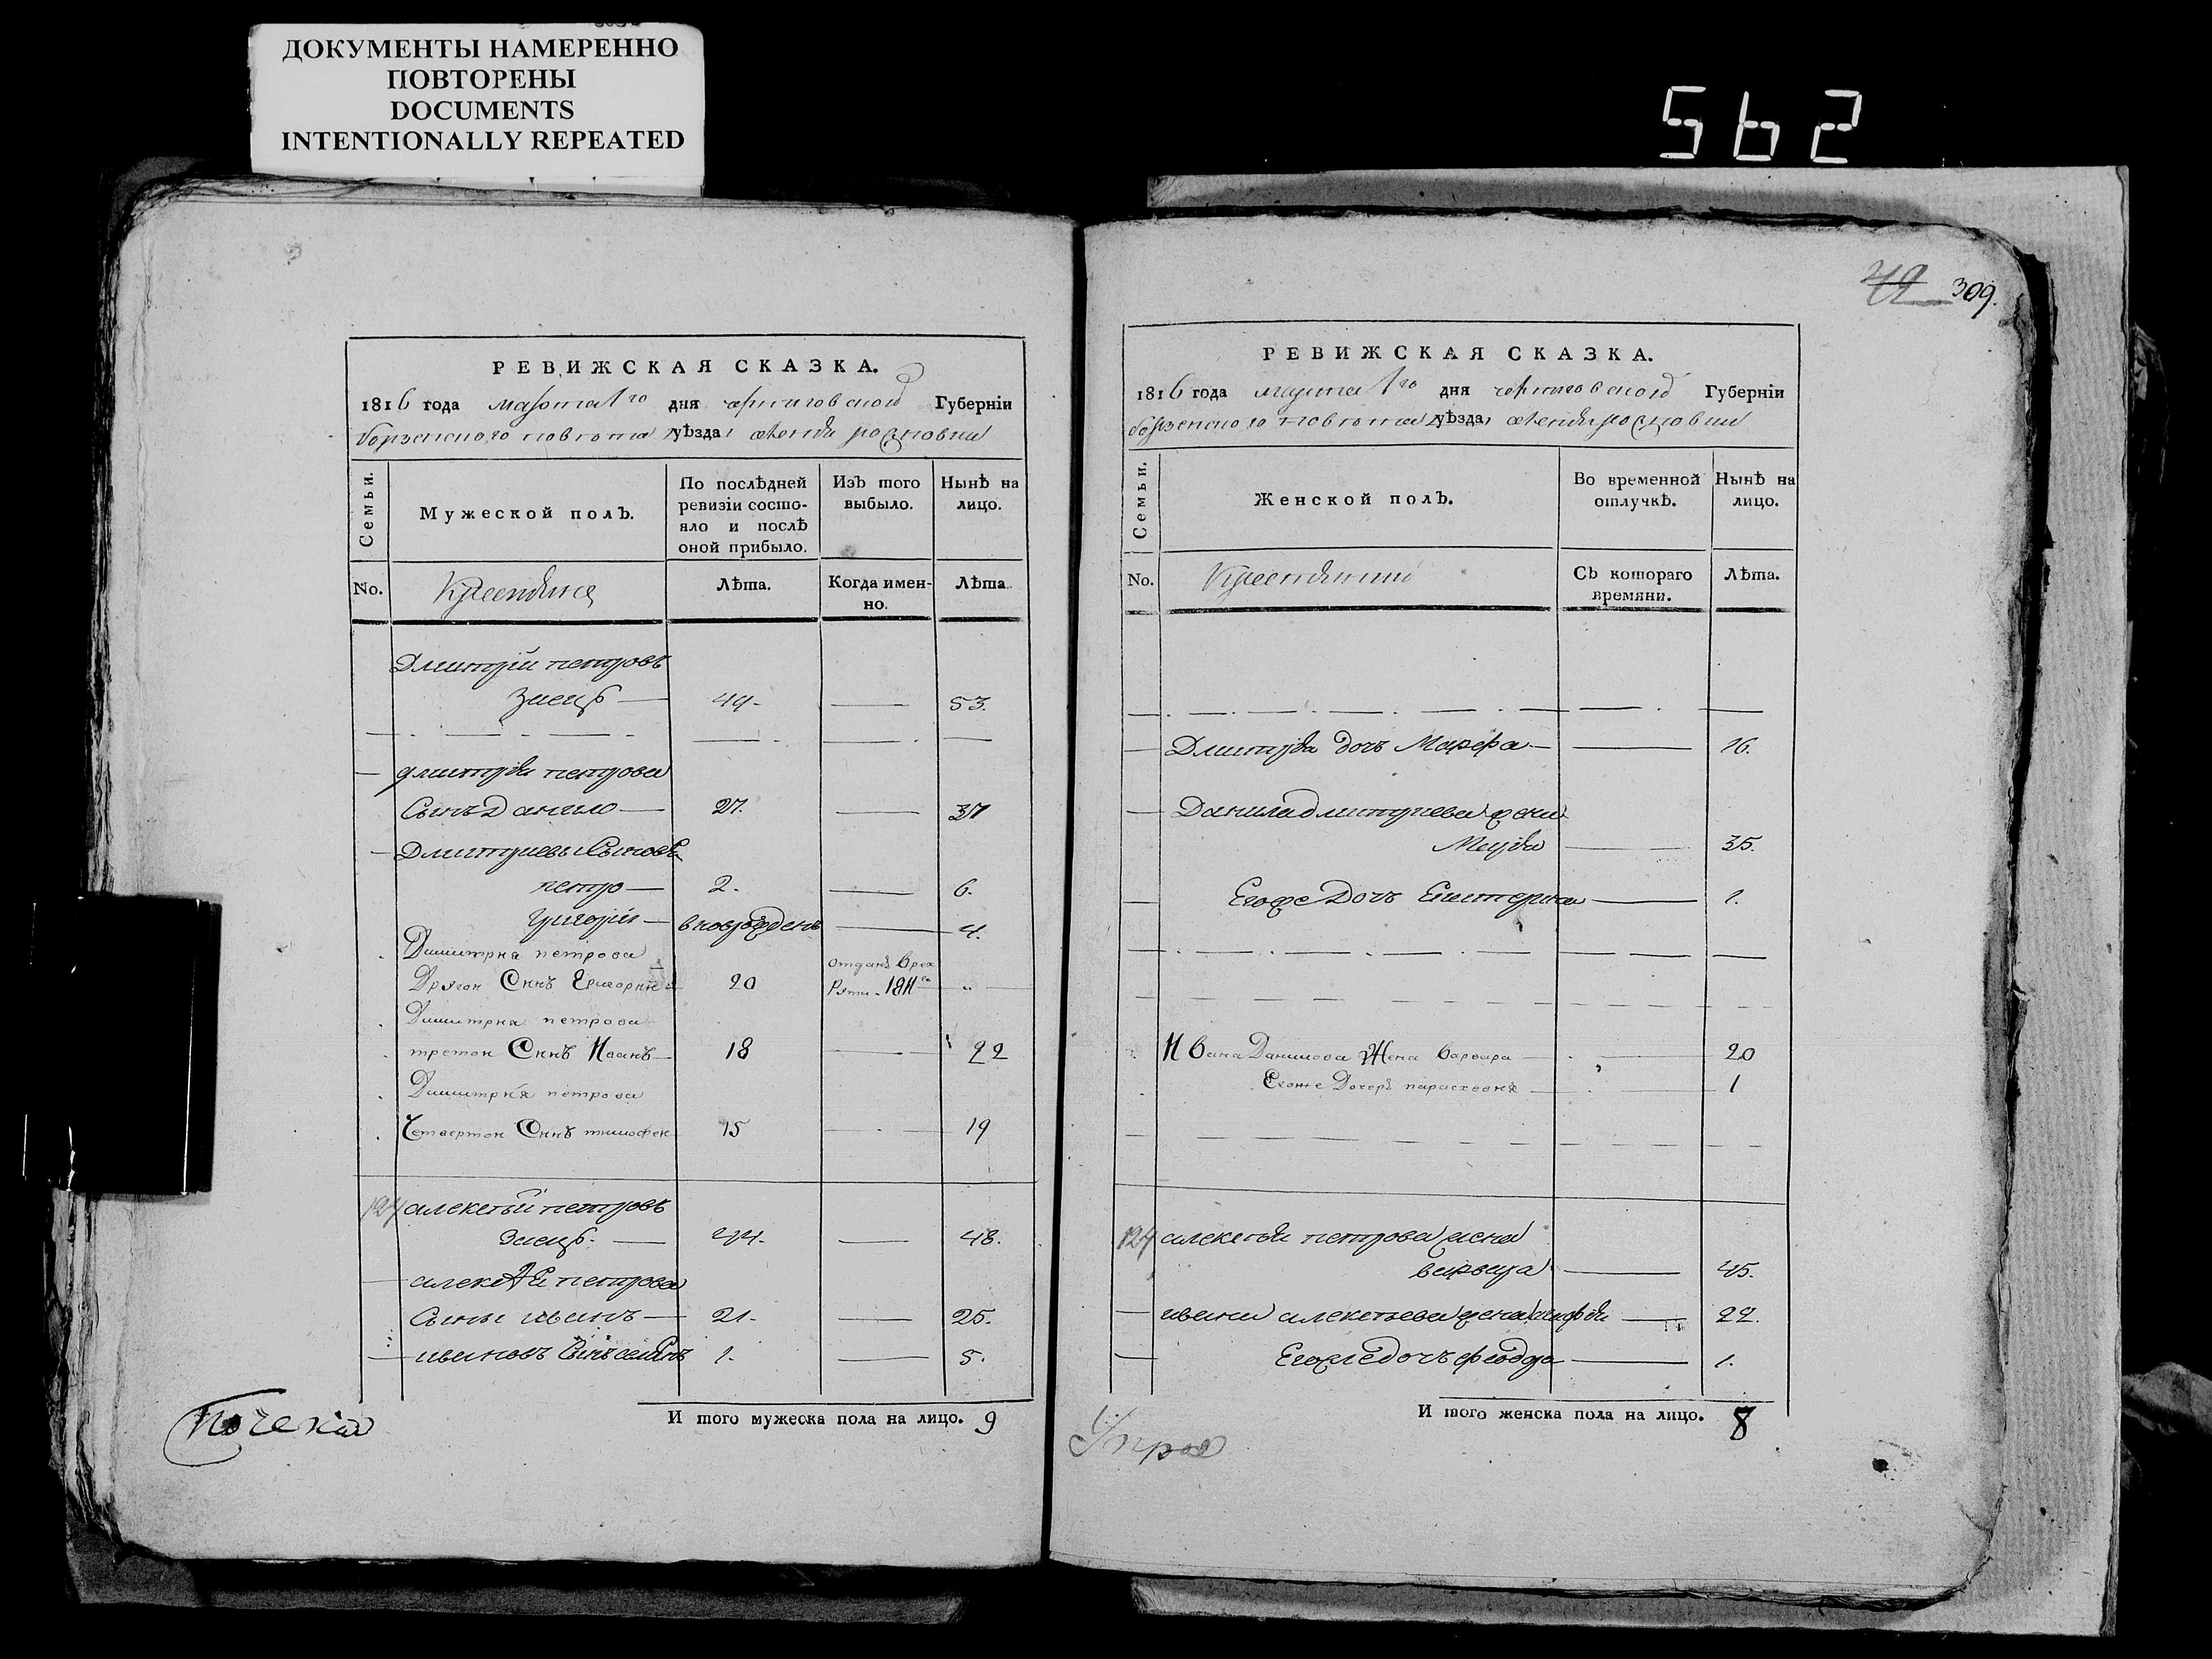 ДОКУМЕНТЫ НАМЕРЕННО
ПОВТОРЕНЫ
DOCUMENTS
INTENTIONALLY REPEATED
562
РЕВИЖСКАЯ СКАЗКА.
1816 года марта 1го дня черниговской Губерніи
борзенского повета уѣзда
Семьи.
Мужеской полъ.
По послѣдней
ревизіи состо-
яло и послѣ
оной прибыло.
Изъ того
выбыло.
Нынѣ на
лицо.
No.
Лѣта.
Когда имен-
но.
Лѣта
Дмитрій петровъ
Заецъ — 49. — 53.
дмитрія петрова
Сынъ Данило — 27. — 31
Дмитриевы Сыновья
петро — 2. — 6.
Григорій — вновьрожденъ — 4.
Димитрия петрова
Другои Синъ Григории 20 отданъ врек
рути 1811го
Димитрия петрова
третои Синъ Иванъ — 18 — 22
Димитрия петрова
Четвертои Синъ тимофеи 15 — 19
124 алексѣй петровъ
Заецъ. — 44. — 48.
алексѣя петрова
Сынъ иванъ — 21. — 25.
ивановъ Сынъ 1. — 5.
И того мужеска пола на лицо. 9
49 309.
РЕВИЖСКАЯ СКАЗКА.
1816 года марта 1го дня черниговской Губерніи
борзенского повета уѣзда
Семьи.
Женской полъ.
Во временной
отлучкѣ.
Нынѣ на
лицо.
No.
Съ котораго
времяни.
Лѣта.
Дмитрія дочь Марфа — 16.
Данила дмитриева жена
Марія — 35.
Егоже Дочь Екатерина — 1.
Ивана Данилова Жена варвара — 20
Егоже Дочерь параскевия — 1
124 алексѣя петрова жена
варвара — 45.
ивана алексѣева жена — 22.
Егоже дочь феодора — 1.
И того женска пола на лицо. 8